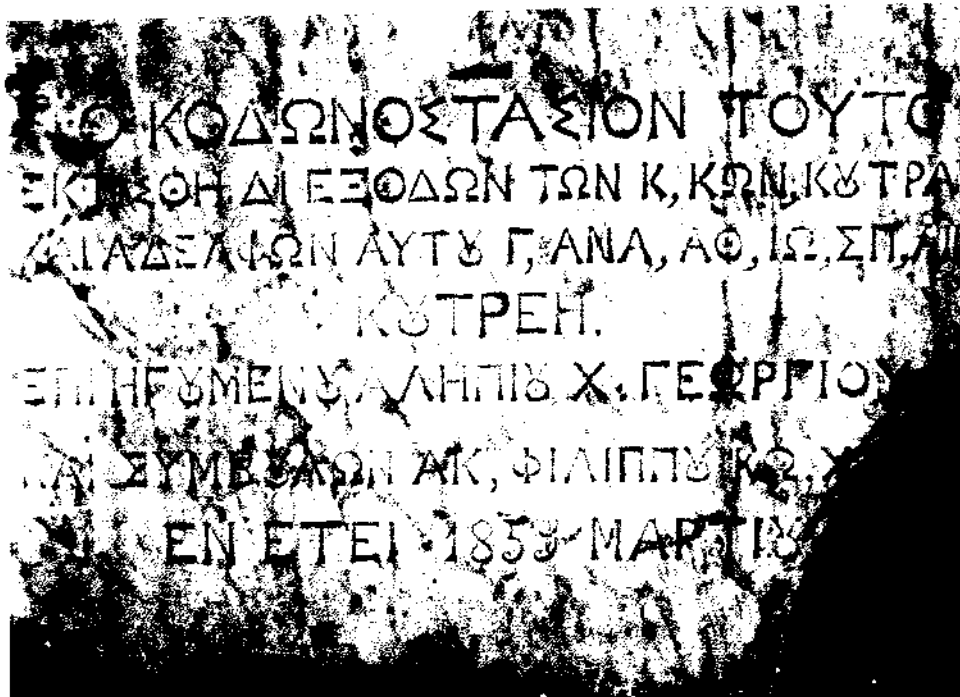 ΤΟ ΚΟΔΩΝΟΣΤΑΣΙΟΝ ΤΟΥΤΟ
ΕΚΤΙΣΘΗ ΔΙ ΕΞΟΔΩΝ ΤΩΝ Κ, ΚΩΝ, ΚȣΤΡΑ
ΚΑΙ ΑΔΕΛΦΩΝ ΑΥΤȣ Γ, ΑΝΑ, ΑΘ, ΙΩ, ΣΠ,
ΚȣΤΡΕΗ.
ΕΠΙ ΗΓȣΜΕΝȣ ΑΛΗΠΙȣ Χ. ΓΕΩΡΓΙΟΥ
ΚΑΙ ΣΥΜΒȣΛΩΝ ΑΚ, ΦΙΛΙΠΠȣ ΚΩ, Χ
ΕΝ ΕΤΕΙ 1859 ΜΑΡΤΙȣ